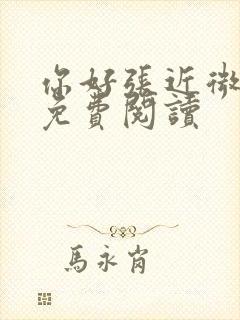 你好張近微
免費閱讀
馬永肖